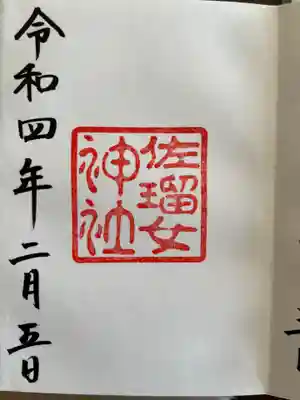 佐瑠女
神社
令和四年二月五日